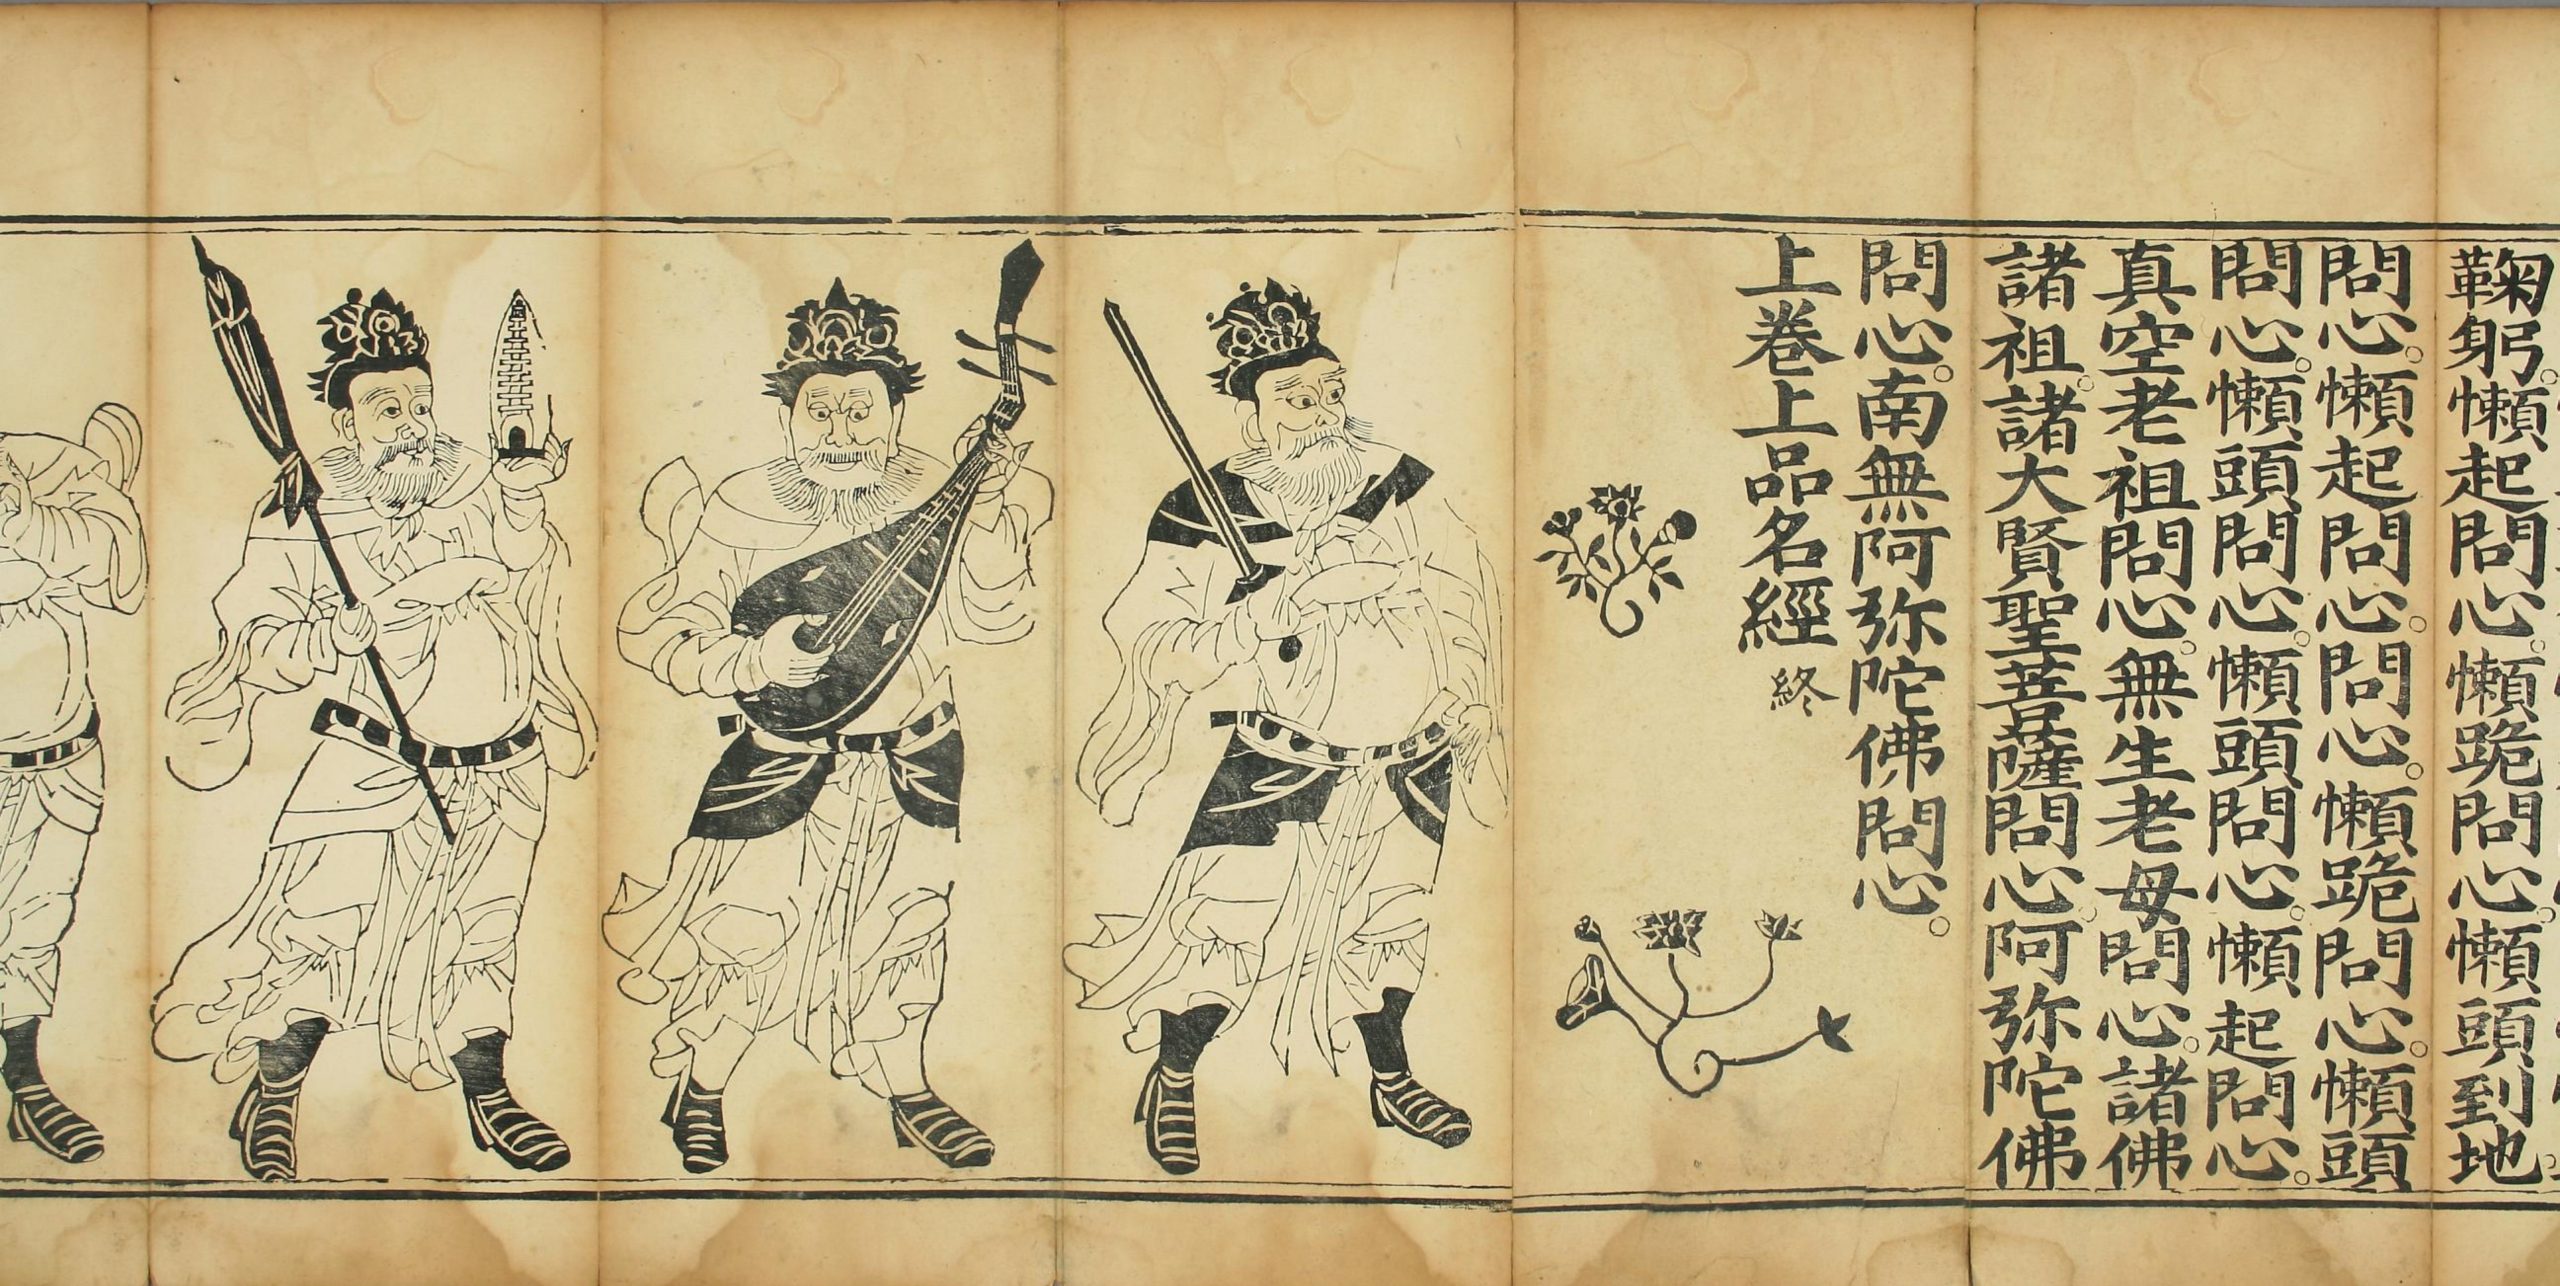 鞠躬。懶起問心。懶跪問心。懶頭到地
問心。懶起問心。問心。懶跪問心。懶頭
問心。懶頭問心。懶頭問心。懶起問心。
真空老祖問心。無生老母問心。諸佛
諸祖。諸大賢聖菩薩問心。阿弥陀佛
問心。南無阿弥陀佛問心。
上卷上品名經終